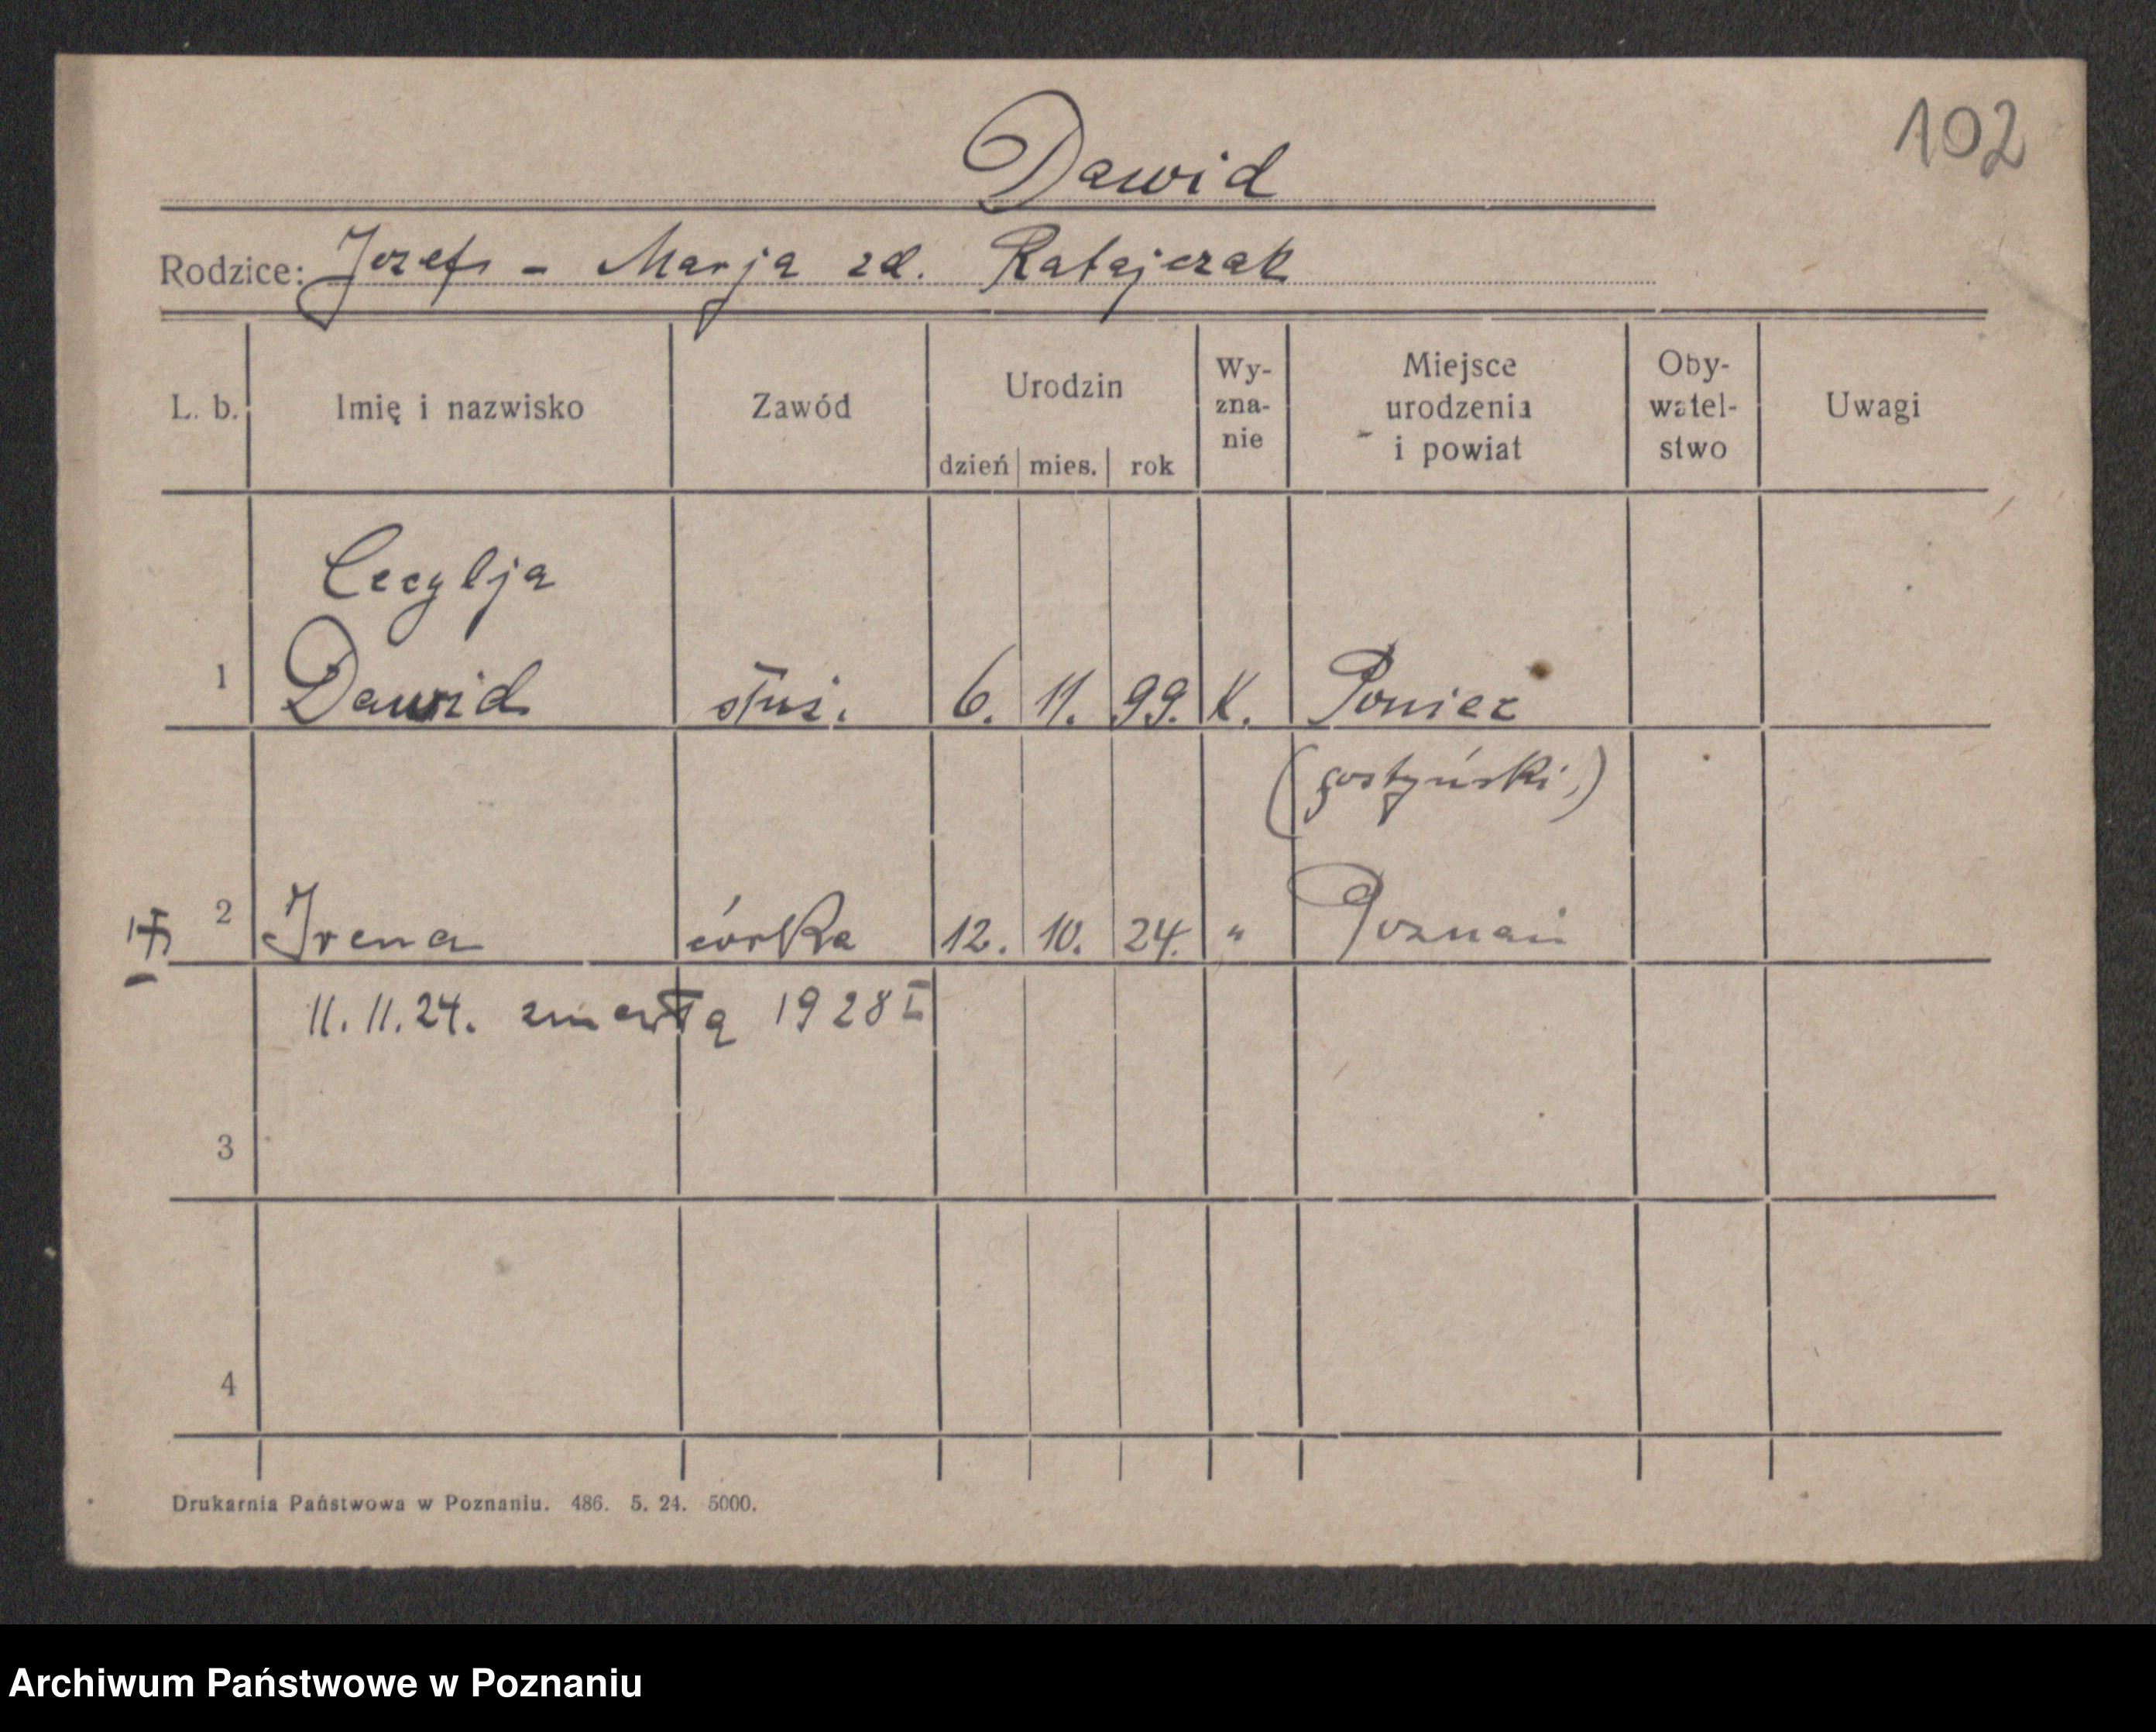 102
Dawid
Rodzice: Jozef - Marja zd. Ratajczak
L. b. Imię i nazwisko Zawód Urodzin dzień mies. rok Wy-zna-nie Miejsce urodzenia i powiat Oby-watel-stwo Uwagi
Cecylja
1 Dawid służ. 6. 11. 99. K. Poniec
(gostyński,)
2 Irena córka 12. 10. 24. " Poznań
11. 11. 24. zmarła 1928 I
3
4
Drukarnia Państwowa w Poznaniu. 486. 5. 24. 5000.
Archiwum Państwowe w Poznaniu